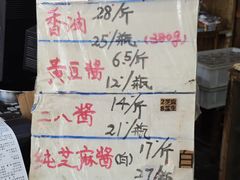 香油 28/斤
25/瓶 (380g)
黄豆醬 6.5/斤
12/瓶
二八醬 14/斤
21/瓶
純芝麻醬(白) 17/斤
27/瓶
白